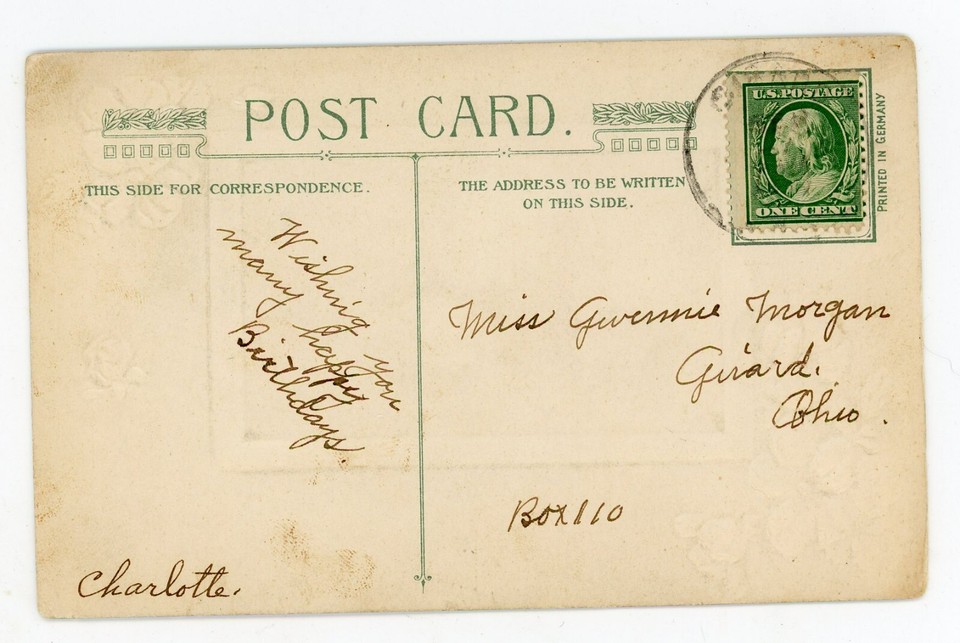 POST CARD.
THIS SIDE FOR CORRESPONDENCE.
THE ADDRESS TO BE WRITTEN
ON THIS SIDE.
U.S. POSTAGE
ONE CENT
PRINTED IN GERMANY
Wishing you
many happy
Birthdays.
Charlotte.
Miss Gwennie Morgan
Girard.
Ohio.
Box 110